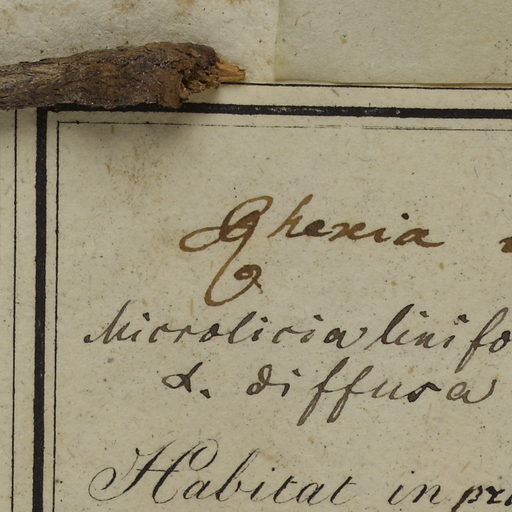 Rhexia
Microlicia linifo
α. diffusa
Habitat in pra